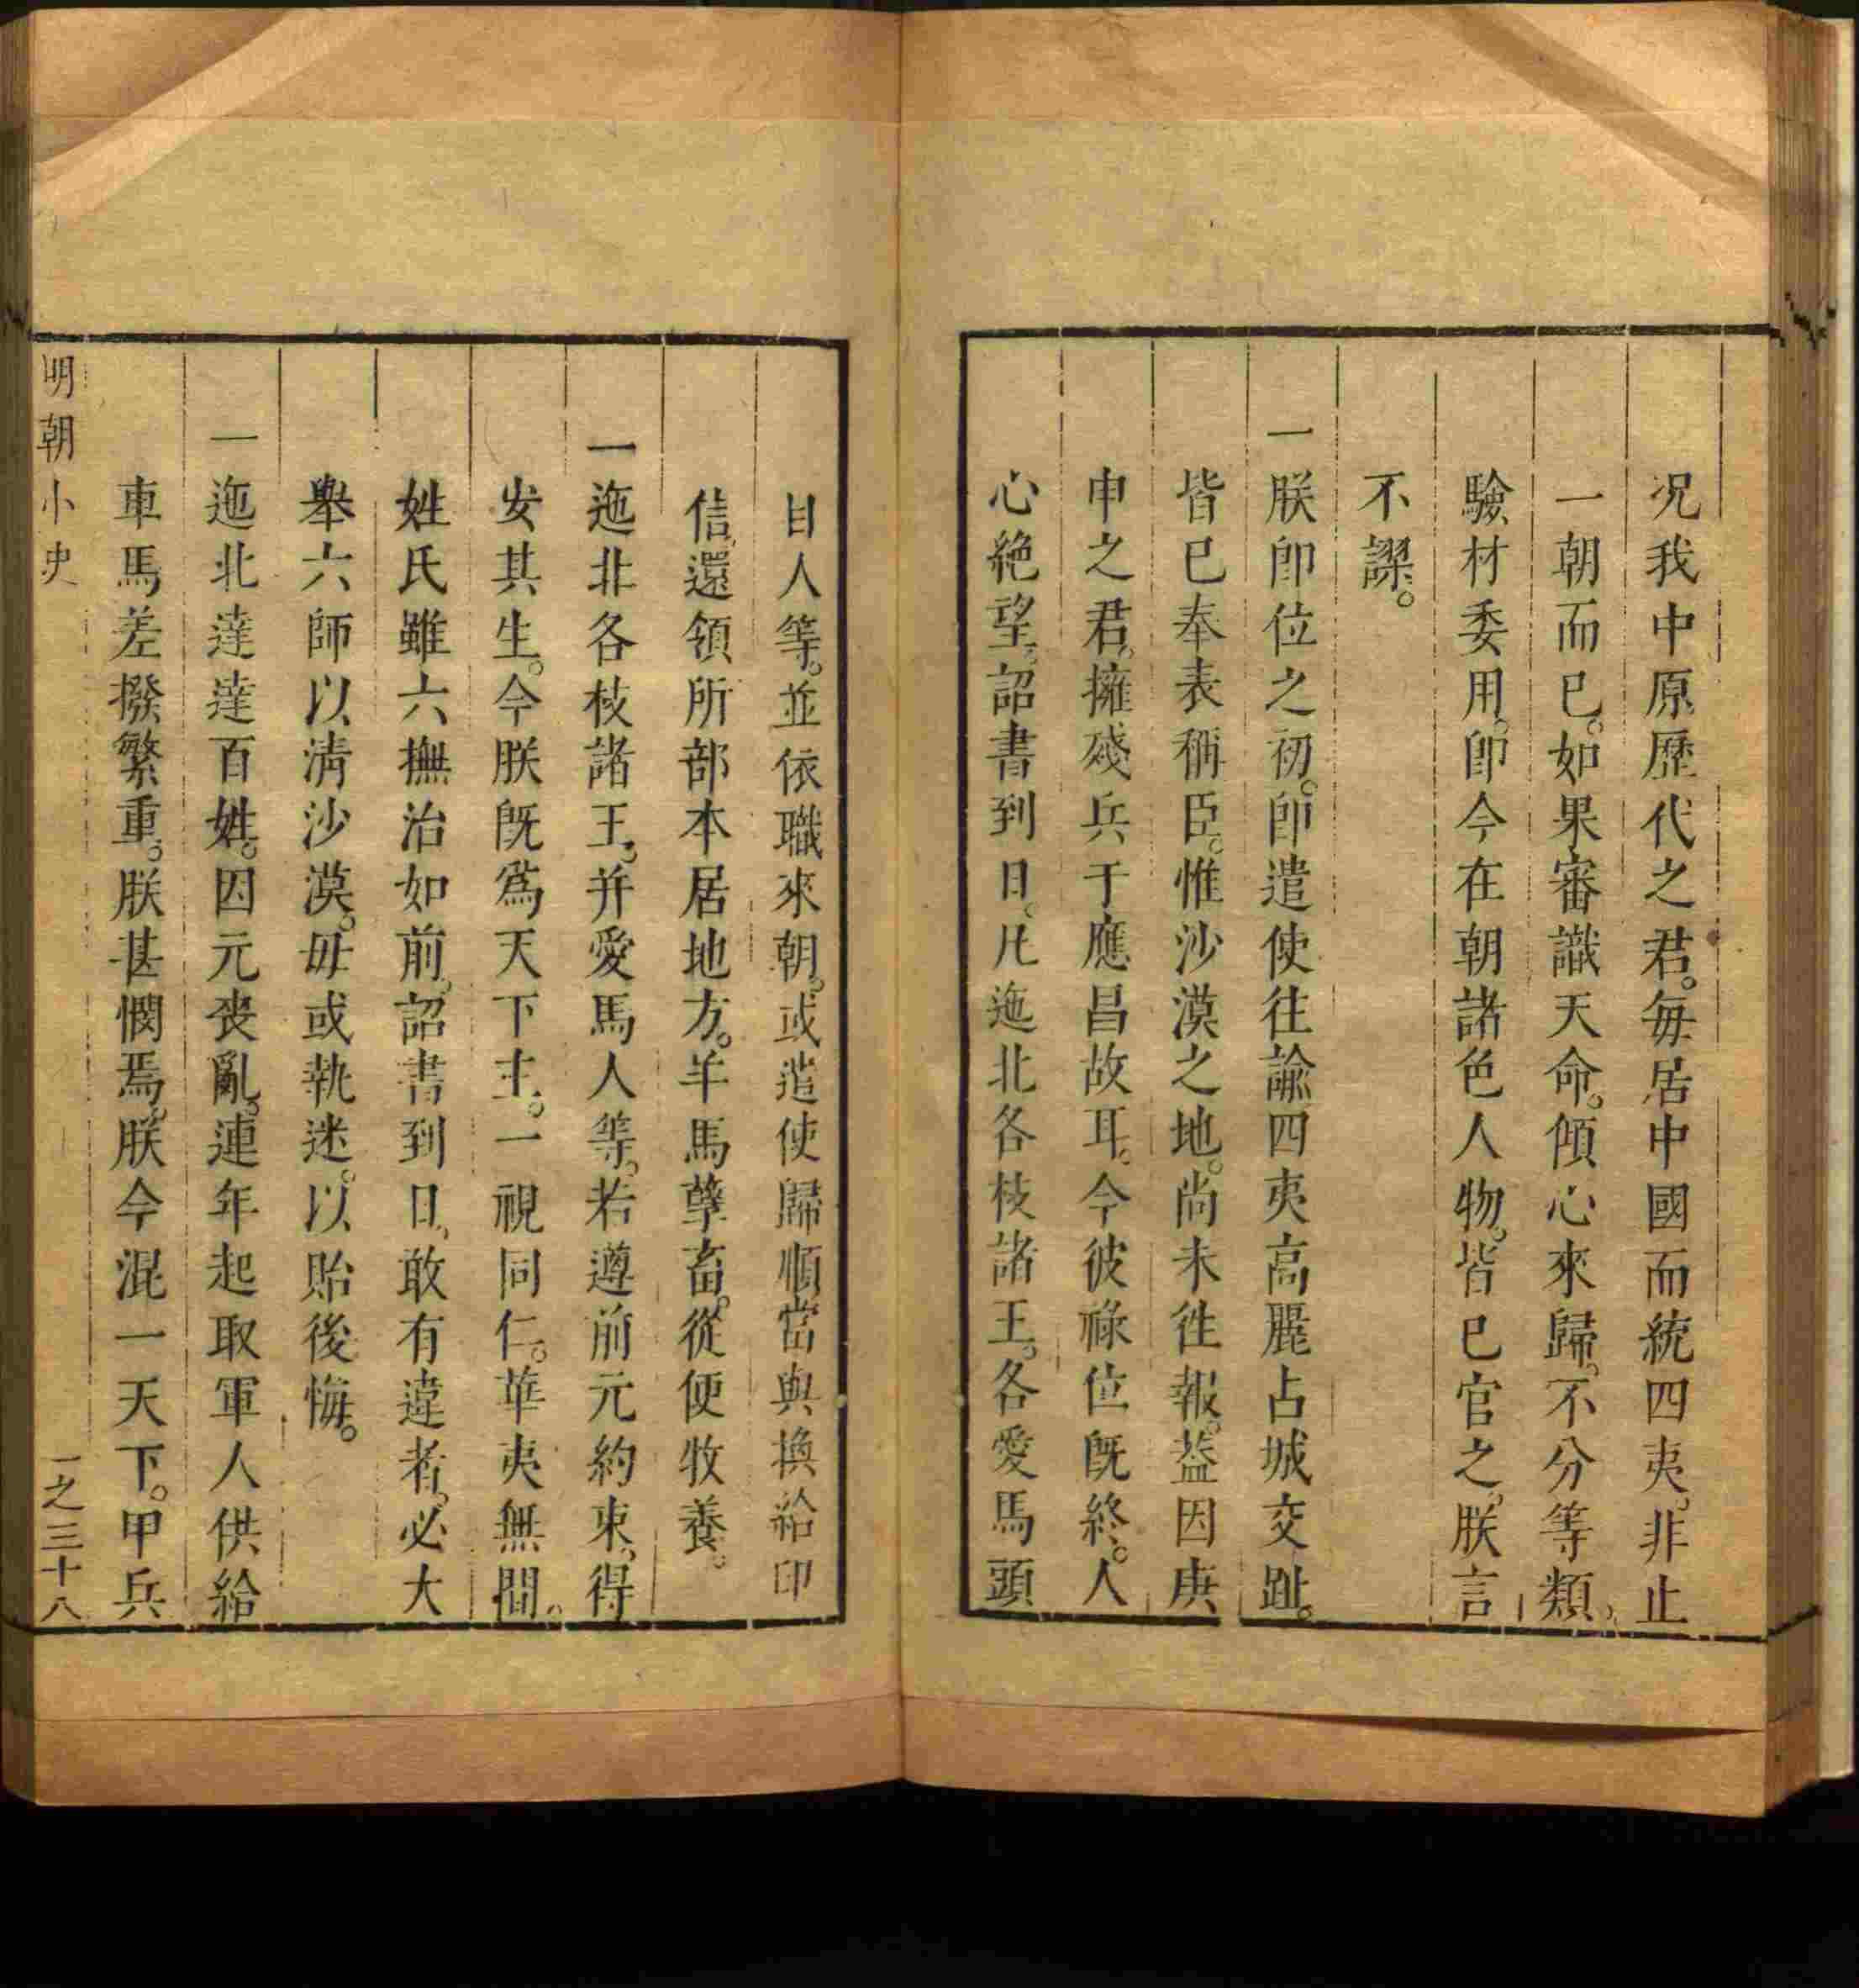 况我中原歷代之君。每居中國而統四夷。非止
一朝而巳。如果審識天命。傾心來歸。不分等類。
驗材委用。卽今在朝諸色人物。皆巳官之。朕言
不謬。
一朕卽位之初。卽遣使往諭四夷高麗占城交趾。
皆巳奉表稱臣。惟沙漠之地。尚未徃報。葢因庚
申之君。擁殘兵于應昌故耳。今彼祿位旣終。人
心絶望。詔書到日。凡迤北各枝諸王。各愛馬頭
目人等。並依職來朝。或遣使歸順當與換給印
信。還領所部本居地方。羊馬孳畜。從便牧養。
一迤北各枝諸王。并愛馬人等。若遵前元約束。得
安其生。今朕旣爲天下主。一視同仁。華夷無間。
姓氏雖六撫治如前。詔書到日。敢有違者。必大
舉六師以淸沙漠。毋或執迷。以貽後悔。
一迤北達達百姓。因元喪亂。連年起取軍人供給
車馬差撥繁重。朕甚憫焉。朕今混一天下。甲兵
明朝小史 一之三十八